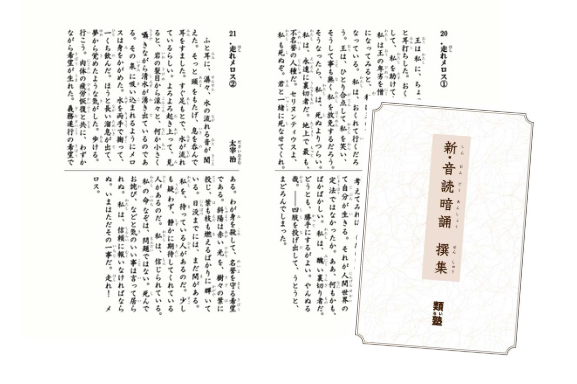 20．走れメロス①
王は私に、ちょ
と耳打ちした。おく
して、私を助けて
私は王の卑劣を憎
になってみると、
なっている。私は、おくれて行くだろ
う。王は、ひとり合点して私を笑い、
そうして事も無く私を放免するだろう。
そうなったら、私は、死ぬよりつらい。
私は、永遠に裏切者だ。地上で最も、
不名誉の人種だ。セリヌンティウスよ、
私も死ぬぞ。君と一緒に死なせてくれ。
考えてみれば
て自分が生きる。それが人間世界の
定法ではなかったか。ああ、何もかも、
ばかばかしい。私は、醜い裏切り者だ。
どうとも、勝手にするがよい。やんぬる
哉。――四肢を投げ出して、うとうと、
まどろんでしまった。
21．走れメロス②
太宰 治
ふと耳に、潺々、水の流れる音が聞
えた。そっと頭をもたげ、息を呑んで
耳をすました。すぐ足もとで、水が流れ
ているらしい。よろよろ起き上って、見
ると、岩の裂目から滾々と、何か小さく
囁きながら清水が湧き出ているのであ
る。その泉に吸い込まれるようにメロ
スは身をかがめた。水を両手で掬って、
一くち飲んだ。ほうと長い溜息が出て、
夢から覚めたような気がした。歩ける。
行こう。肉体の疲労恢復と共に、わずか
ながら希望が生れた。義務遂行の希望で
ある。わが身を殺して、名誉を守る希望
である。斜陽は赤い光を、樹々の葉に
投じ、葉も枝も燃えるばかりに輝いて
いる。日没までには、まだ間がある。
私を、待っている人があるのだ。少し
も疑わず、静かに期待してくれている
人があるのだ。私は、信じられている。
私の命なぞは、問題ではない。死んで
お詫び、などと気のいい事は言って居ら
れぬ。私は、信頼に報いなければなら
ぬ。いまはただその一事だ。走れ！メ
ロス。
新・音読暗誦 撰集
類塾